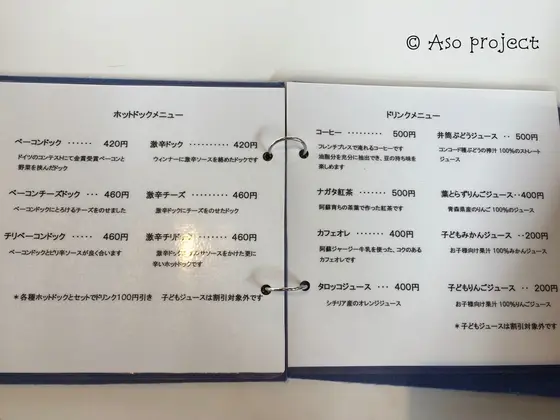 © Aso project
ホットドックメニュー
ベーコンドック ・・・・・・ 420円
ドイツのコンテストにて金賞受賞ベーコンと
野菜を挟んだドック
激辛ドック ・・・・・・・・・ 420円
ウィンナーに激辛ソースを絡めたドックです
ベーコンチーズドック ・・・ 460円
ベーコンドックにとろけるチーズをのせました
激辛チーズ ・・・・・・・・ 460円
激辛ドックにチーズをのせたドック
チリベーコンドック ・・・・ 460円
ベーコンドックとピリ辛ソースが良く合います
激辛チリドック 460円
激辛ドック ソースをかけた更に
辛いホットドックです
＊各種ホットドックとセットでドリンク100円引き 子どもジュースは割引対象外です
ドリンクメニュー
コーヒー ・・・・・・・・・ 500円
フレンチプレスで淹れるコーヒーです
油脂分を充分に抽出でき、豆の持ち味を
楽しめます
井筒ぶどうジュース ・・ 500円
コンコード種ぶどうの搾汁 100%のストレート
ジュース
ナガタ紅茶 ・・・・・・・ 500円
阿蘇育ちの茶葉で作った紅茶です
葉とらずりんごジュース ・・400円
青森県産のりんご 100%のジュース
カフェオレ ・・・・・・・ 400円
阿蘇ジャージー牛乳を使った、コクのある
カフェオレです
子どもみかんジュース ・・ 200円
お子様向け果汁 100%みかんジュース
タロッコジュース ・・・・ 400円
シチリア産のオレンジジュース
子どもりんごジュース ・・ 200円
お子様向け果汁 100%りんごジュース
＊子どもジュースは割引対象外です